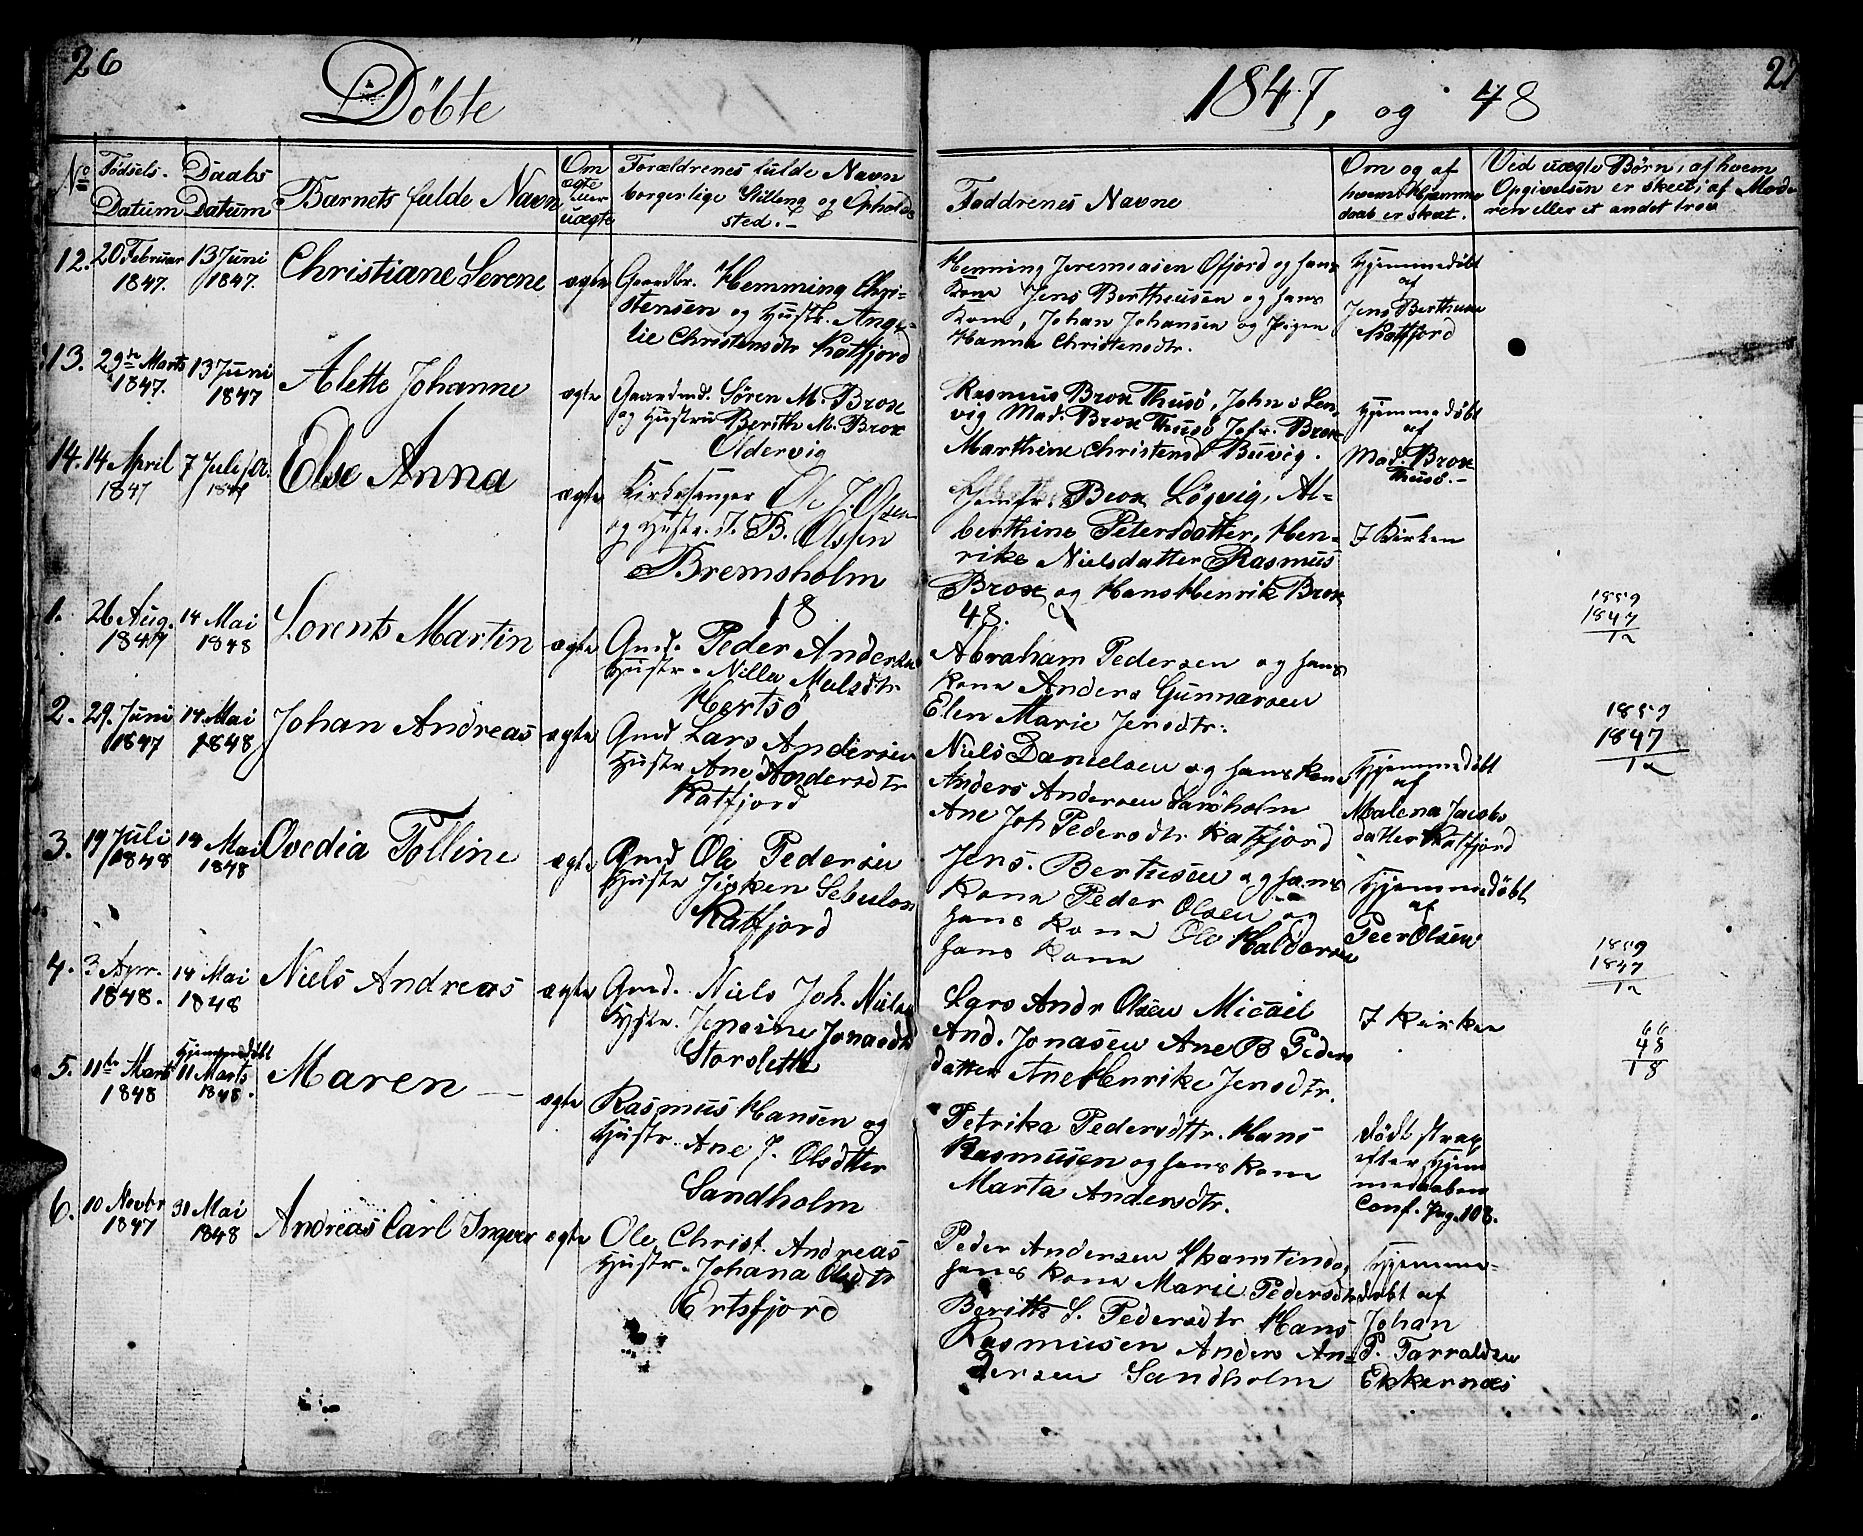 26
Døbte
1847, og 48
27
No
Fødsels-
Datum
Daabs
Datum
Barnets fulde Navn
Om
ægte
eller
uægte
Forældrenes fulde Navn
borgerlige Stilling og Opholds
sted.-
Faddrenes Navne
Om og af
hvem Hjemme
daab er skeet.
Ved uægte Børn, af hvem
Opgivelsen er skeet; af Mode
ren eller et andet trov
12. 20 Februar
1847.
13 Juni
1847.
Christiane Serene
ægte
Gaardbr. Hemming Chri-
stensen og Hustr. Ange-
lie Christensdtr Katfjord
Henning Jeremiasen Ofjord og hans
Kone Jens Bertheusen og hans
Kone, Johan Johansen og Pigen
Hanna Christensdtr.
Hjemmedøbt
af
Jens Bertheusen
Katfjord
13. 29de Marts
1847.
13 Juni
1847
Alette Johanne
ægte
Gaardmd. Søren M. Brox
og Hustru Berith M. Brox
Oldervig
Rasmus Brox Thusö, John Len
vig Mad. Brox Thusö Jofr. Brox
Marthine Christensd Buvig.
Hjemmedøbt
af
Mad. Brox
Thusö.-
14. 14 April
1847
7 Juli
Else Anna
ægte
Kirkesanger Ole J. Olsen
og Hustr. J. B. Olsen
Bremsholm
Jomfr. Brox Løgvig, Al-
berthine Petersdatter, Hen-
rike Nielsdatter Rasmus
Brox og Hans Henrik Brox
I Kirken
18
48.
1. 26 Aug.
1847
14 Mai
1848
Lorents Martin
ægte
Gmd. Peder Andersen
Hustr. Nilla Mulsdtr
Hertsö
Abraham Pedersen og hans
Kone Anders Gunnarsen
Elen Marie Jensdtr:
1859
1847
12
2. 29. Juni
1847
14 Mai
1848
Johan Andreas
ægte
Gmd Lars Andersen
Hustr Ane Andersdtr
Katfjord
Niels Danielsen og hans Kone
Anders Andersen Sandholm
Ane Joh Pedersdtr Katfjord
Hjemmedøbt
af
Malena Jacobs
datter Katfjord
1859
1847
12
3. 19 Juli
1848
14 Mai
1848
Ovedia Tolline
ægte
Gmd Ole Pedersen
Hustr Jisken Sebulon
Katfjord
Jens. Bertusen og hans
Kone Peder Olsen og
hans Kone Ole Haldorsen
hans Kone
Hjemmedøbt
af
Peer Olsen
4. 3 Apr.
1848.
14 Mai
1848
Niels Andreas
ægte
Gmd. Niels Joh. Nielsen
Hustr. Jensine Jonasdtr
Storsleth
Lars Andr Olsen Micail
And. Jonasen Ane B Peders
datter Ane Henrike Jensdtr.
I Kirken
1859
1847
12
5. 11te Marts
1848
Hjemmedøbt
11 Marts
1848.
Maren
ægte
Rasmus Hansen og
Hustr. Ane J. Olsdtter
Sandholm
Petrika Pedersdttr. Hans
Rasmusen og hans Kone
Marta Andersdtr.
dödt strax
efter Hjem
medaaben
Conf. Pag. 108.
66
48
18
6. 10 Novbr
1847
31 Mai
1848
Andreas Carl Ingvar
ægte
Ole Christ. Andreas
Hustr. Johana Olsdtr
Ertsfjord
Peder Andersen Skamtind og
hans Kone Marie Pedersdtr
Berith S. Pedersdtr Hans
Rasmusen Anders An-
dersen Sandholm
Hjemme-
døbt af
Johan
P. Tarraldsen
Ekkernæs